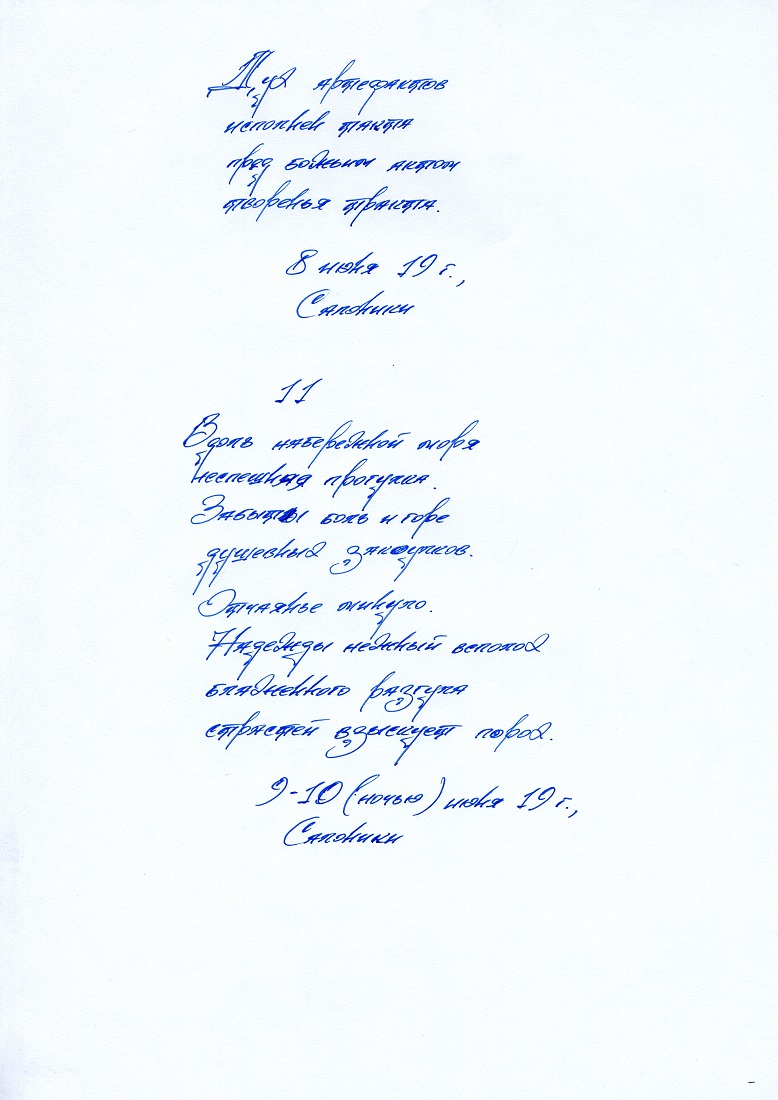 Дух артефактов
исполнен такта
пред божьим актом
творенья тракта.
8 июня 19 г.,
Салоники
11
Вдоль набережной моря
неспешная прогулка.
Забыты боль и горе
душевных закоулков.
Отчаянье минуло.
Надежды нежный всполох
блаженного разгула
страстей взыскует порох.
9-10 (ночью) июня 19 г.,
Салоники